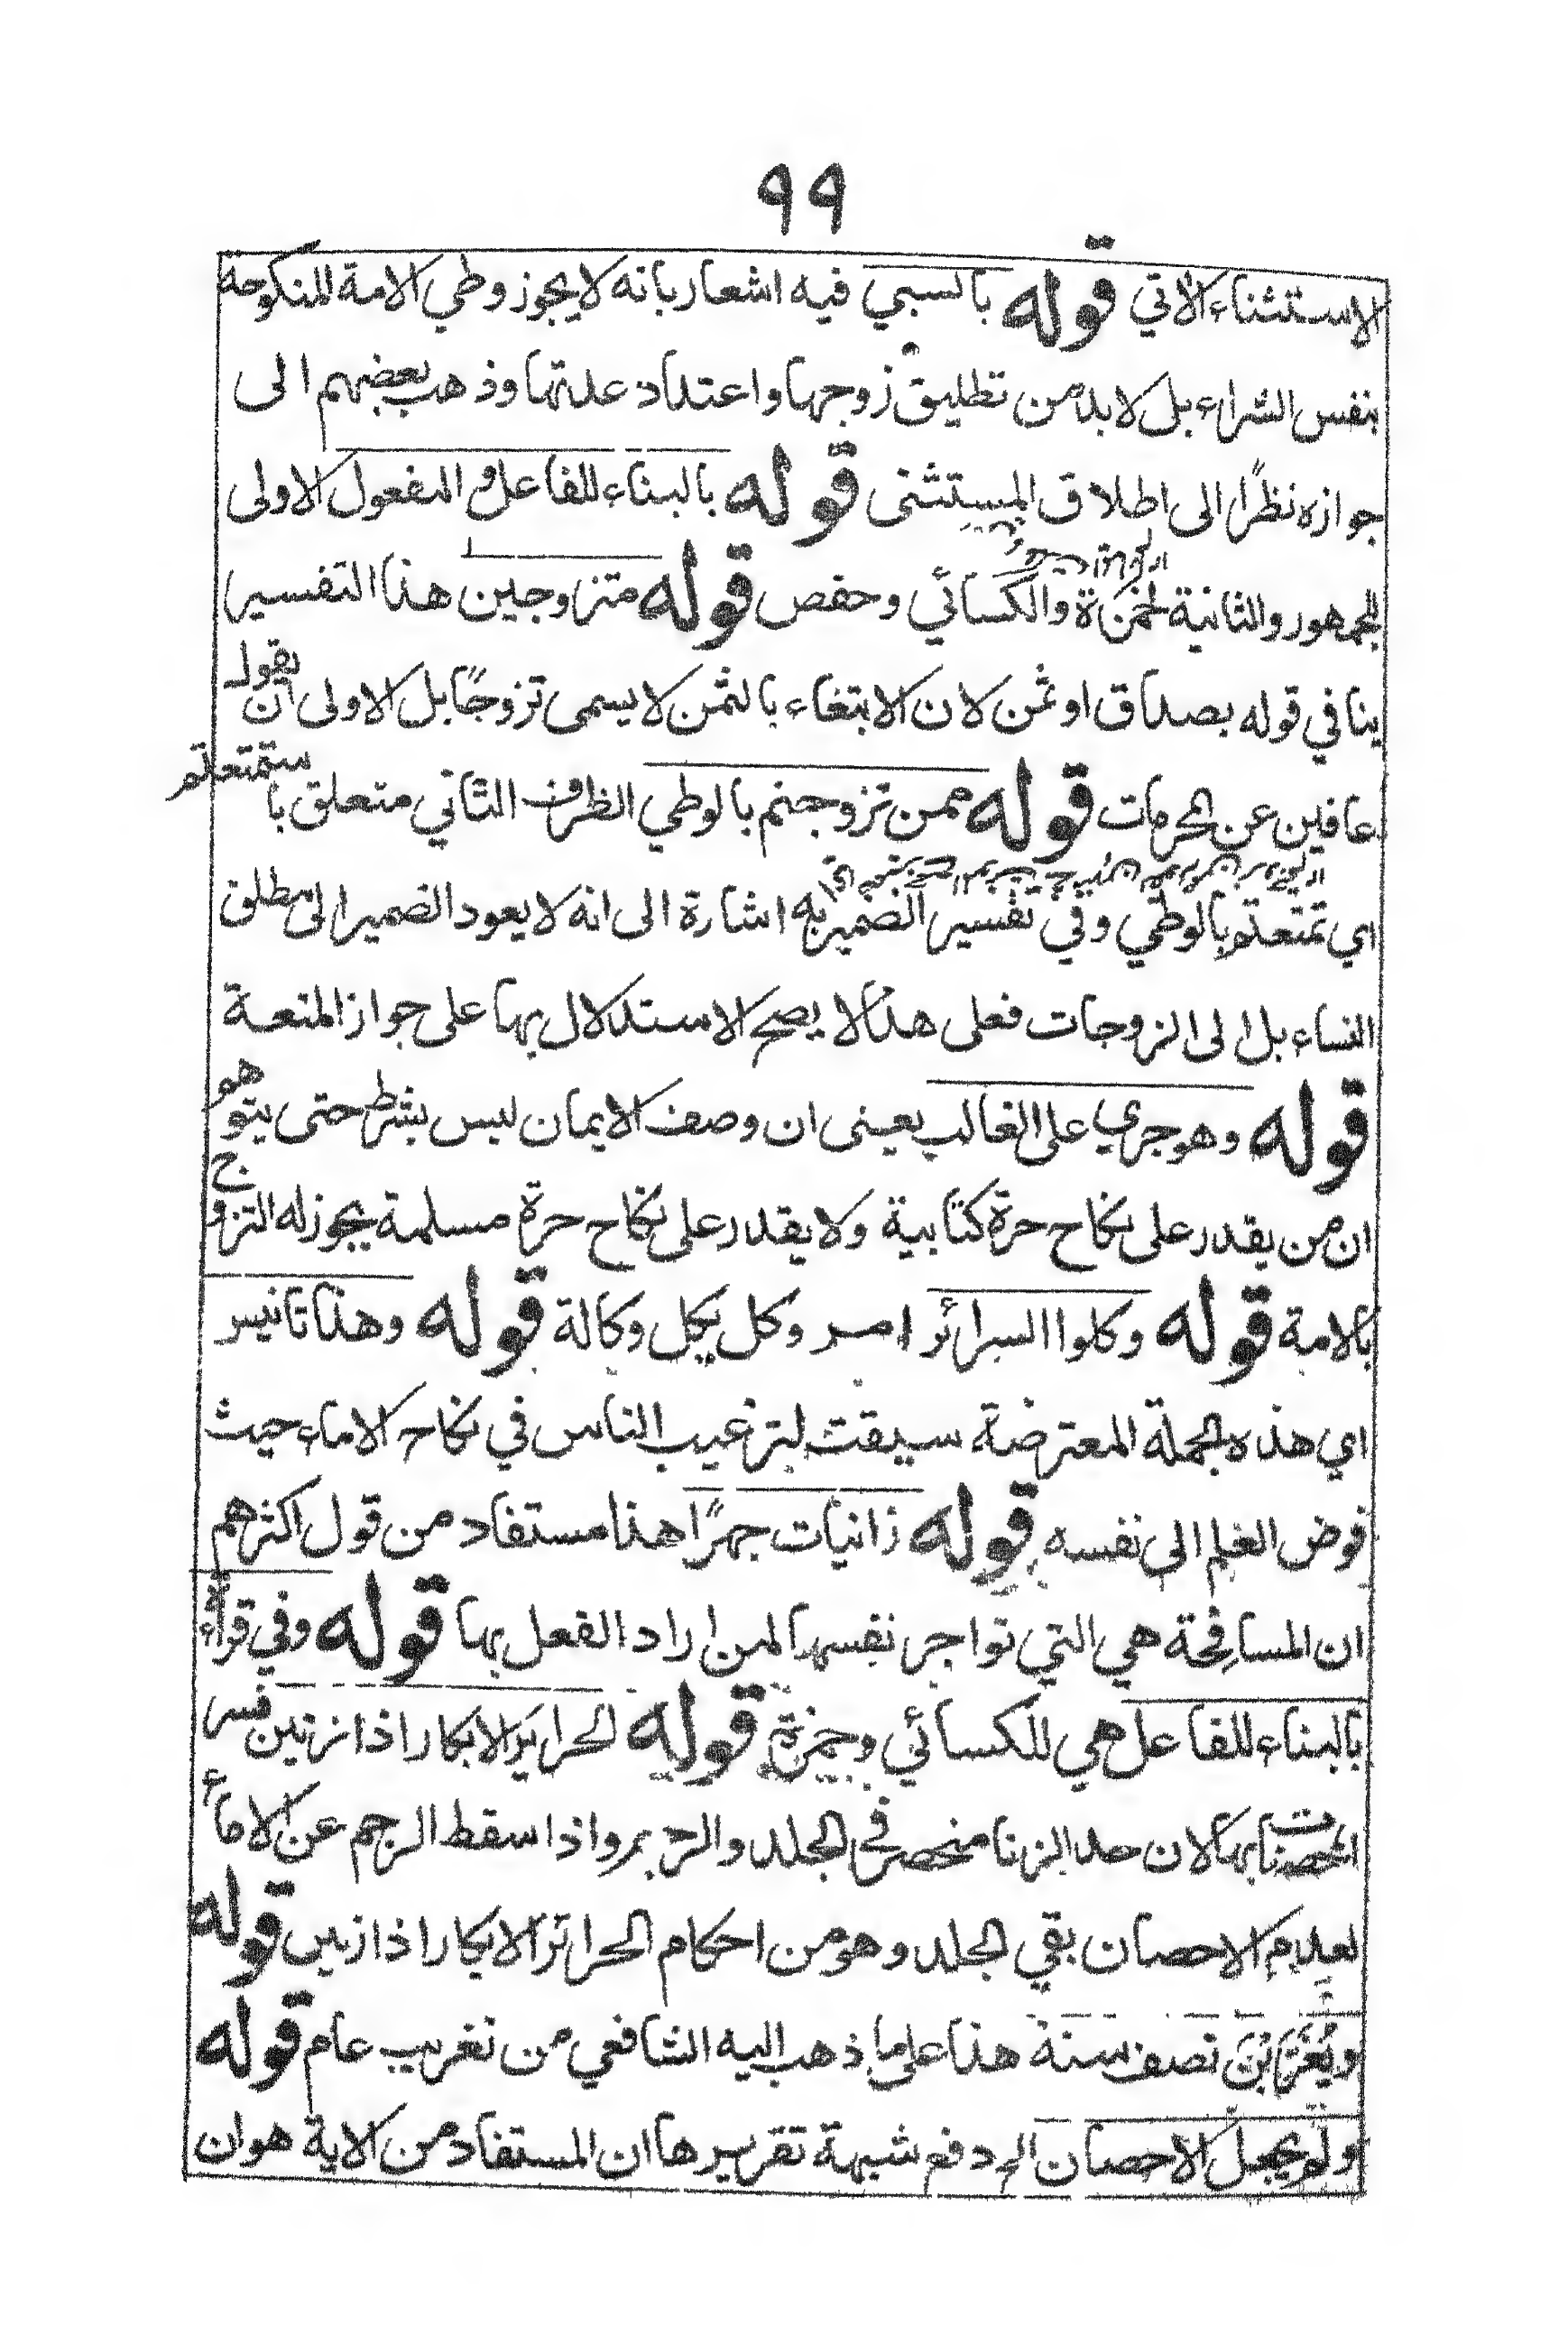 ٩٩
الاستثناء الأتي قوله بالسبي فيه اشعار بانه لا يجوز وطي الامة المنكوحة
بنفس الشراء بل لا بد من تطليق زوجها واعتداد عدتها وذهب بعضهم الى
جوازه نظرًا الى اطلاق المستثنى قوله بالبناء للفاعل و المفعول الاولى
للجمهور والثانية لحمزة والكسائي وحفص قوله متزوجين هذا التفسير
ينافي قوله بصداق او ثمن لان الابتغاء بالثمن لا يسمى تزوجًا بل الاولى ان يقول
عافين عن المحرمات قوله ممن تزوجتم بالوطي الظرف الثاني متعلق باستمتعتم
اي تمتعتم بالوطي وفي تفسير الضمير به اشارة الى انه لا يعود الضمير الى مطلق
النساء بل الى الزوجات فعلى هذا لا يصح الاستدلال بها على جواز المتعة
قوله وهو جري على الغالب يعنى ان وصف الايمان ليس بشرط حتى يتوهو
ان من يقدر على نكاح حرة كتابية ولا يقدر على نكاح حرة مسلمة يجوز له التزوج
بالامة قوله وكلوا السرائر امر وكل يكل وكالة قوله وهذا تانيس
اي هذه الجملة المعترضة سيقت لترغيب الناس في نكاح الاماء حيث
فوض العلم الى نفسه قوله زانيات جهرًا هذا مستفاد من قول اكثرهم
ان المسافحة هي التي تواجر نفسها لمن اراد الفعل بها قوله وفي قراءة
بالبناء للفاعل هي للكسائي وحمزة قوله الحراير الابكار اذا نرتين فسر
المحصنات بها لان حد الزنا منحصر في الجلد والرجم واذا سقط الرجم عن الاماء
لعدم الاحصان بقي الجلد وهو من احكام الحرائر الابكار اذا زنين قوله
ويُغَرَّبْنَ نصف سنة هذا على ما ذهب اليه الشافعي من تغريب عام قوله
ولم يجعل الاحصان الخ دفع شبهة تقريرها ان المستفاد من الاية هو ان